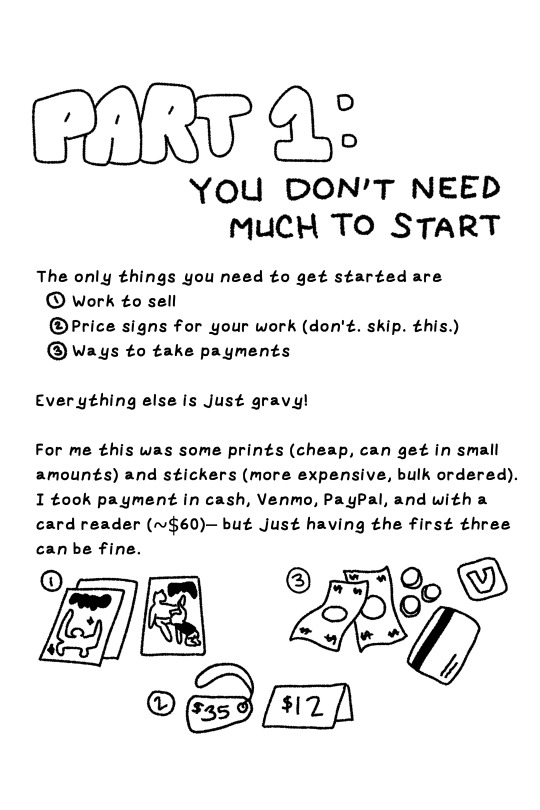 PART 1:
YOU DON'T NEED
MUCH TO START
The only things you need to get started are
① Work to sell
② Price signs for your work (don't. skip. this.)
③ Ways to take payments
Everything else is just gravy!
For me this was some prints (cheap, can get in small
amounts) and stickers (more expensive, bulk ordered).
I took payment in cash, Venmo, PayPal, and with a
card reader (~$60)— but just having the first three
can be fine.
①
③
$ $ $ $
$ $ $ $
V
②
$35
$12